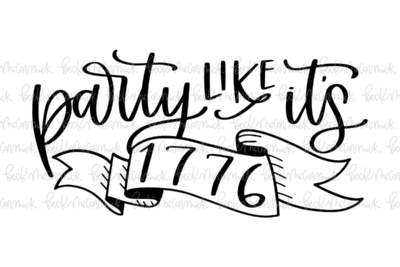 party LIKE it's
1776